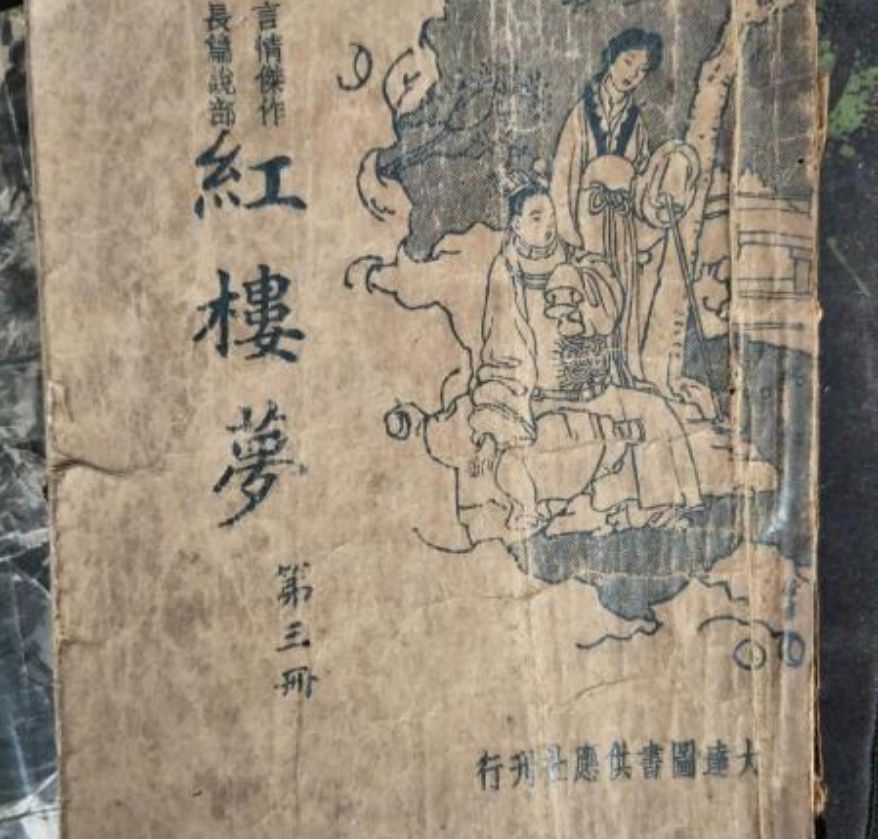 言情傑作
長篇說部
紅樓夢
第三冊
大達圖書供應社刊行